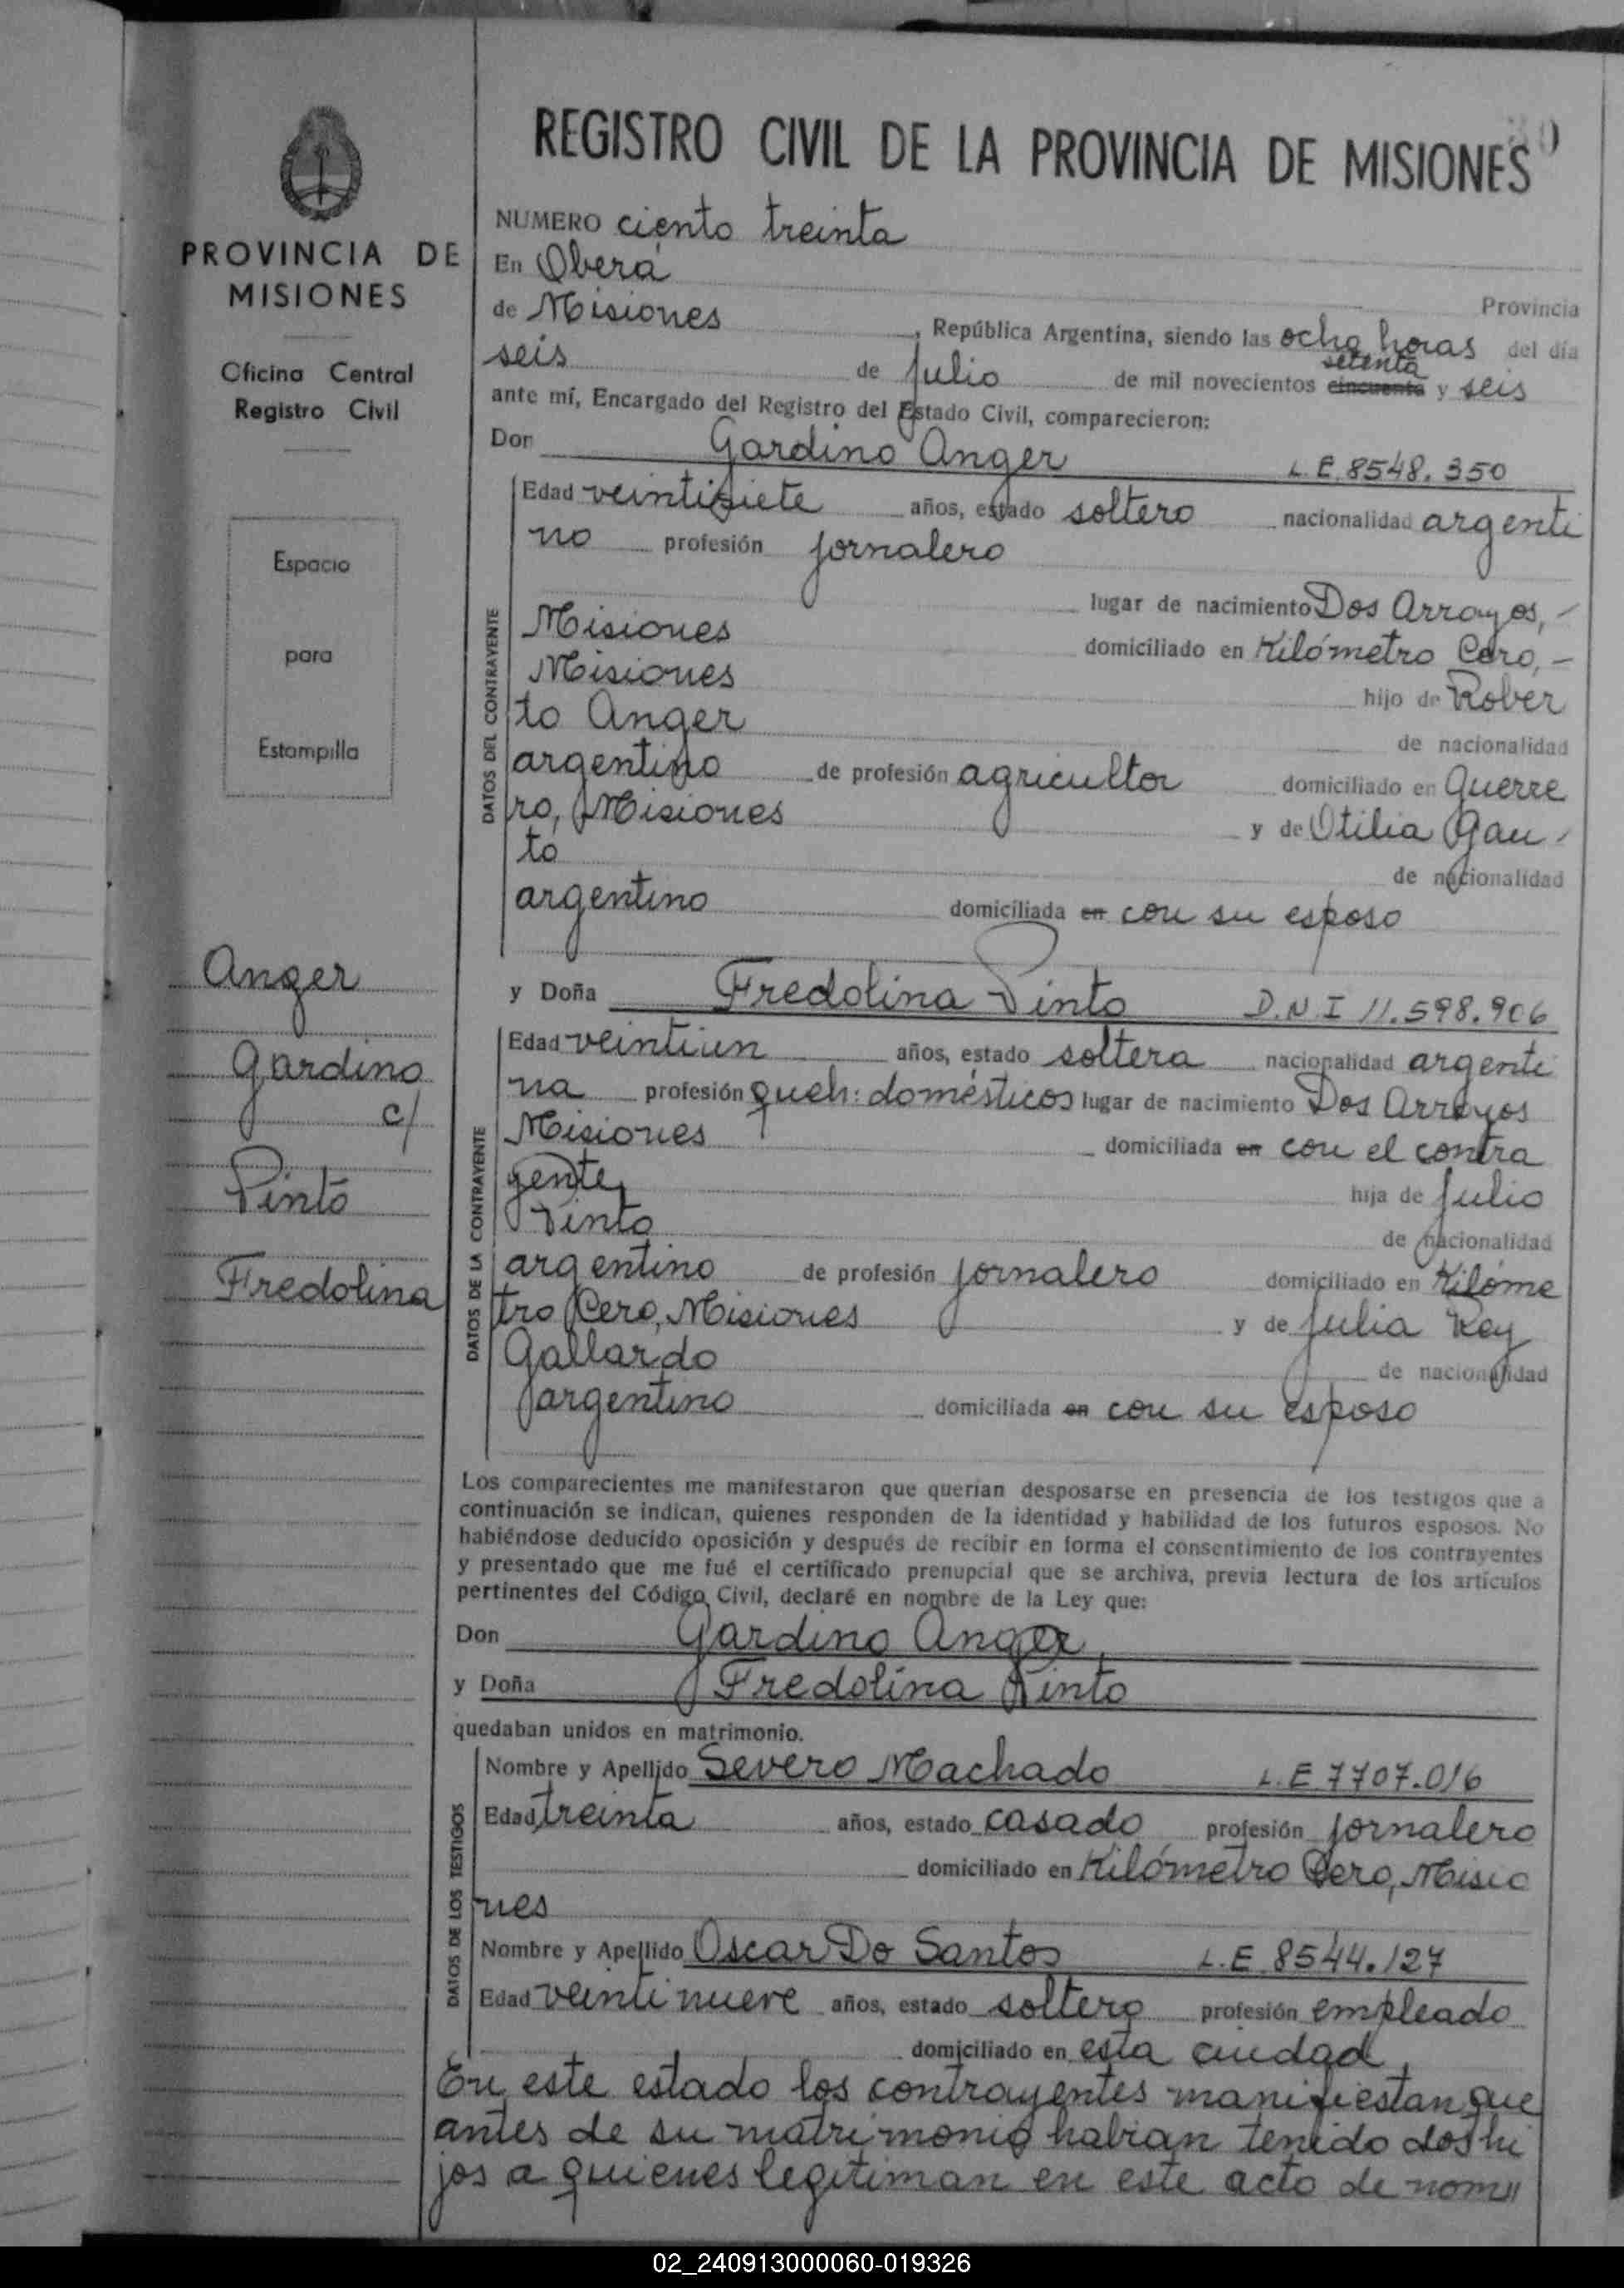 REGISTRO CIVIL DE LA PROVINCIA DE MISIONES
PROVINCIA DE
MISIONES
Oficina Central
Registro Civil
Espacio
para
Estampilla
Anger
Gardino
c/
Pinto
Fredolina
NUMERO ciento treinta
En Oberá
Provincia
de Misiones, República Argentina, siendo las ocho horas del día
seis de julio de mil novecientos cincuenta setenta y seis
ante mí, Encargado del Registro del Estado Civil, comparecieron:
Don Gardino Anger L.E. 8548.350
DATOS DEL CONTRAYENTE
Edad veintisiete años, estado soltero nacionalidad argenti
no profesión jornalero
lugar de nacimiento Dos Arroyos,-
Misiones domiciliado en Kilómetro Cero,-
Misiones hijo de Rober
to Anger de nacionalidad
argentino de profesión agricultor domiciliado en Guerre
ro, Misiones y de Otilia Gau-
to de nacionalidad
argentino domiciliada en con su esposo
y Doña Fredolina Pinto D.N.I 11.598.906
DATOS DE LA CONTRAYENTE
Edad veintiun años, estado soltera nacionalidad argenti
na profesión queh: domésticos lugar de nacimiento Dos Arroyos
Misiones domiciliada en con el contra
yente, hija de Julio
Pinto de nacionalidad
argentino de profesión jornalero domiciliado en Kilóme
tro Cero, Misiones y de Julia Rey
Gallardo de nacionalidad
argentino domiciliada en con su esposo
Los comparecientes me manifestaron que querían desposarse en presencia de los testigos que a
continuación se indican, quienes responden de la identidad y habilidad de los futuros esposos. No
habiéndose deducido oposición y después de recibir en forma el consentimiento de los contrayentes
y presentado que me fué el certificado prenupcial que se archiva, previa lectura de los artículos
pertinentes del Código Civil, declaré en nombre de la Ley que:
Don Gardino Anger,
y Doña Fredolina Pinto
quedaban unidos en matrimonio.
DATOS DE LOS TESTIGOS
Nombre y Apellido Severo Machado L.E 7707.016
Edad treinta años, estado casado profesión jornalero
domiciliado en Kilómetro Cero, Misio
nes
Nombre y Apellido Oscar Do Santos L.E 8544.127
Edad veintinueve años, estado soltero profesión empleado
domiciliado en esta ciudad,
En este estado los contrayentes manifiestan que
antes de su matrimonio habian tenido dos hi
jos a quienes legitiman en este acto de nom"
02_240913000060-019326